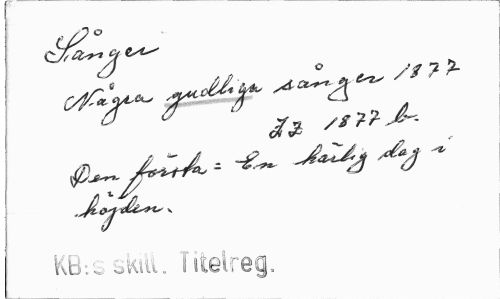 Sånger
Några gudliga sånger 1877
ZZ 1877 b.
Den första = En härlig dag i
höjden.
KB:s skill. Titelreg.